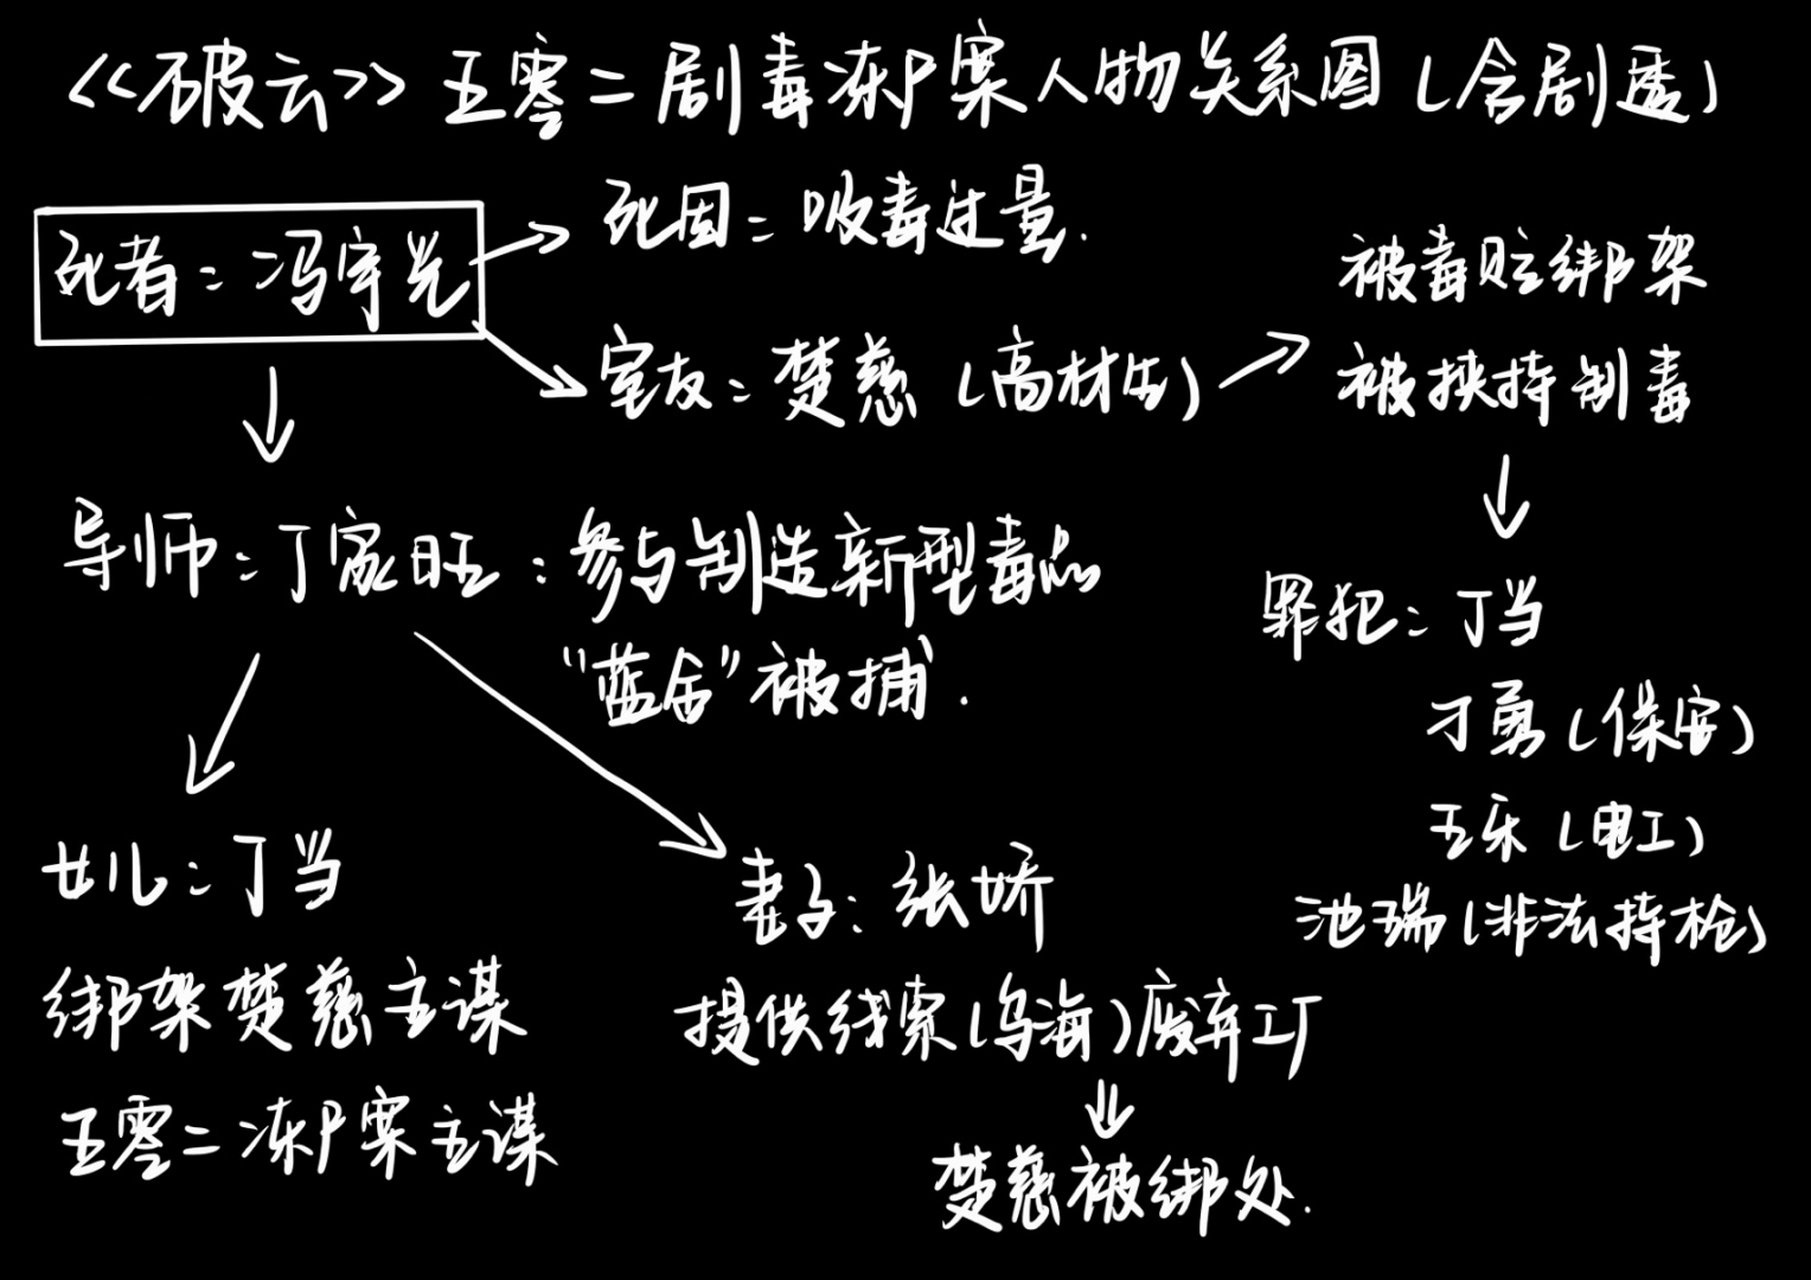 《破云》五零二剧毒冻尸案人物关系图(含剧透)
死者:冯宇光
死因:吸毒过量.
室友:楚慈(高材生)
被毒贩绑架
被挟持制毒
导师:丁家旺:参与制造新型毒品
“蓝金”被捕.
罪犯:丁当
刁勇(保安)
王乐(电工)
池瑞(非法持枪)
女儿:丁当
绑架楚慈主谋
五零二冻尸案主谋
妻子:张娇
提供线索(乌海)废弃工厂
楚慈被绑处.